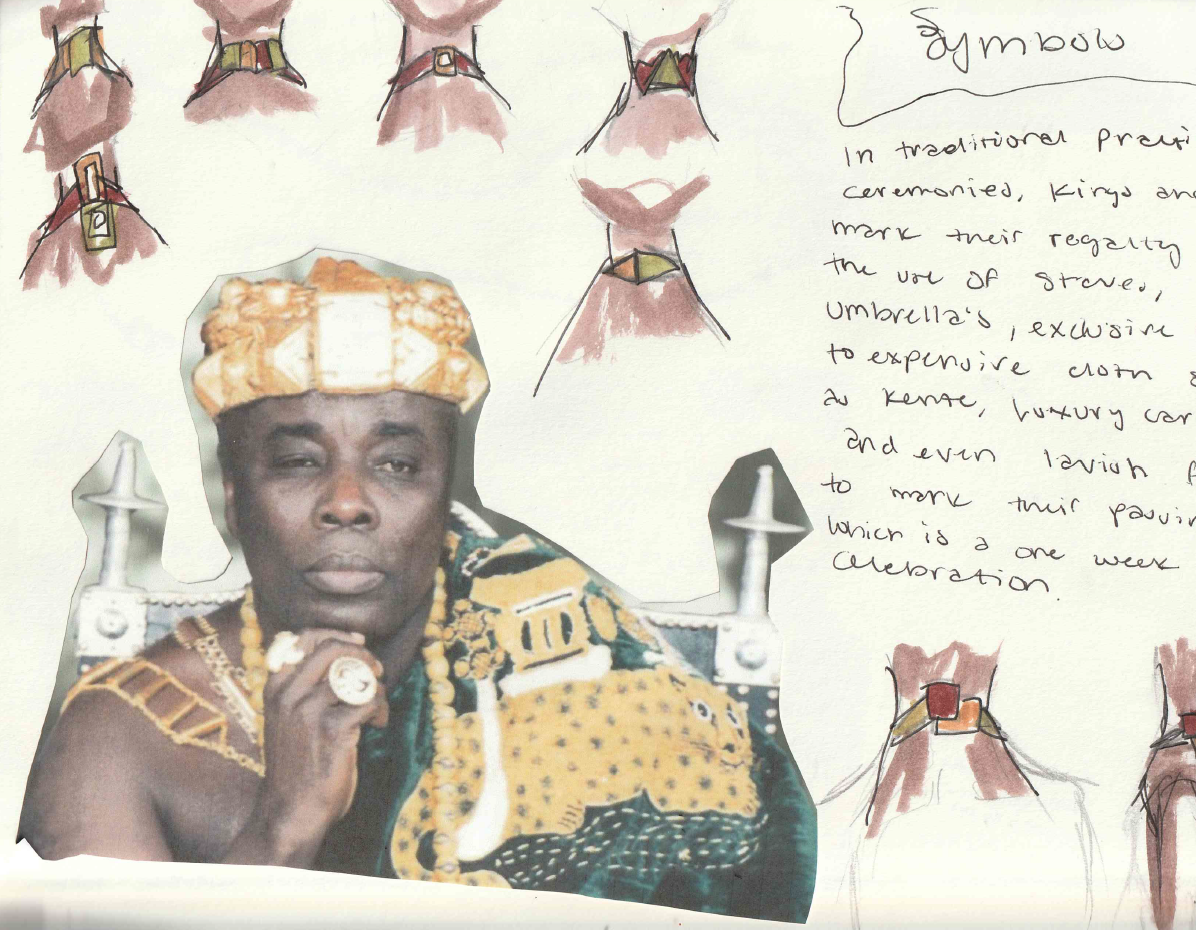 Symbols
In traditional practi
ceremonies, Kings and
mark their regality
the use of staves,
umbrella's, exclusive
to expensive cloth s
as Kente, luxury car
and even lavish f
to mark their passin
which is a one week
celebration.